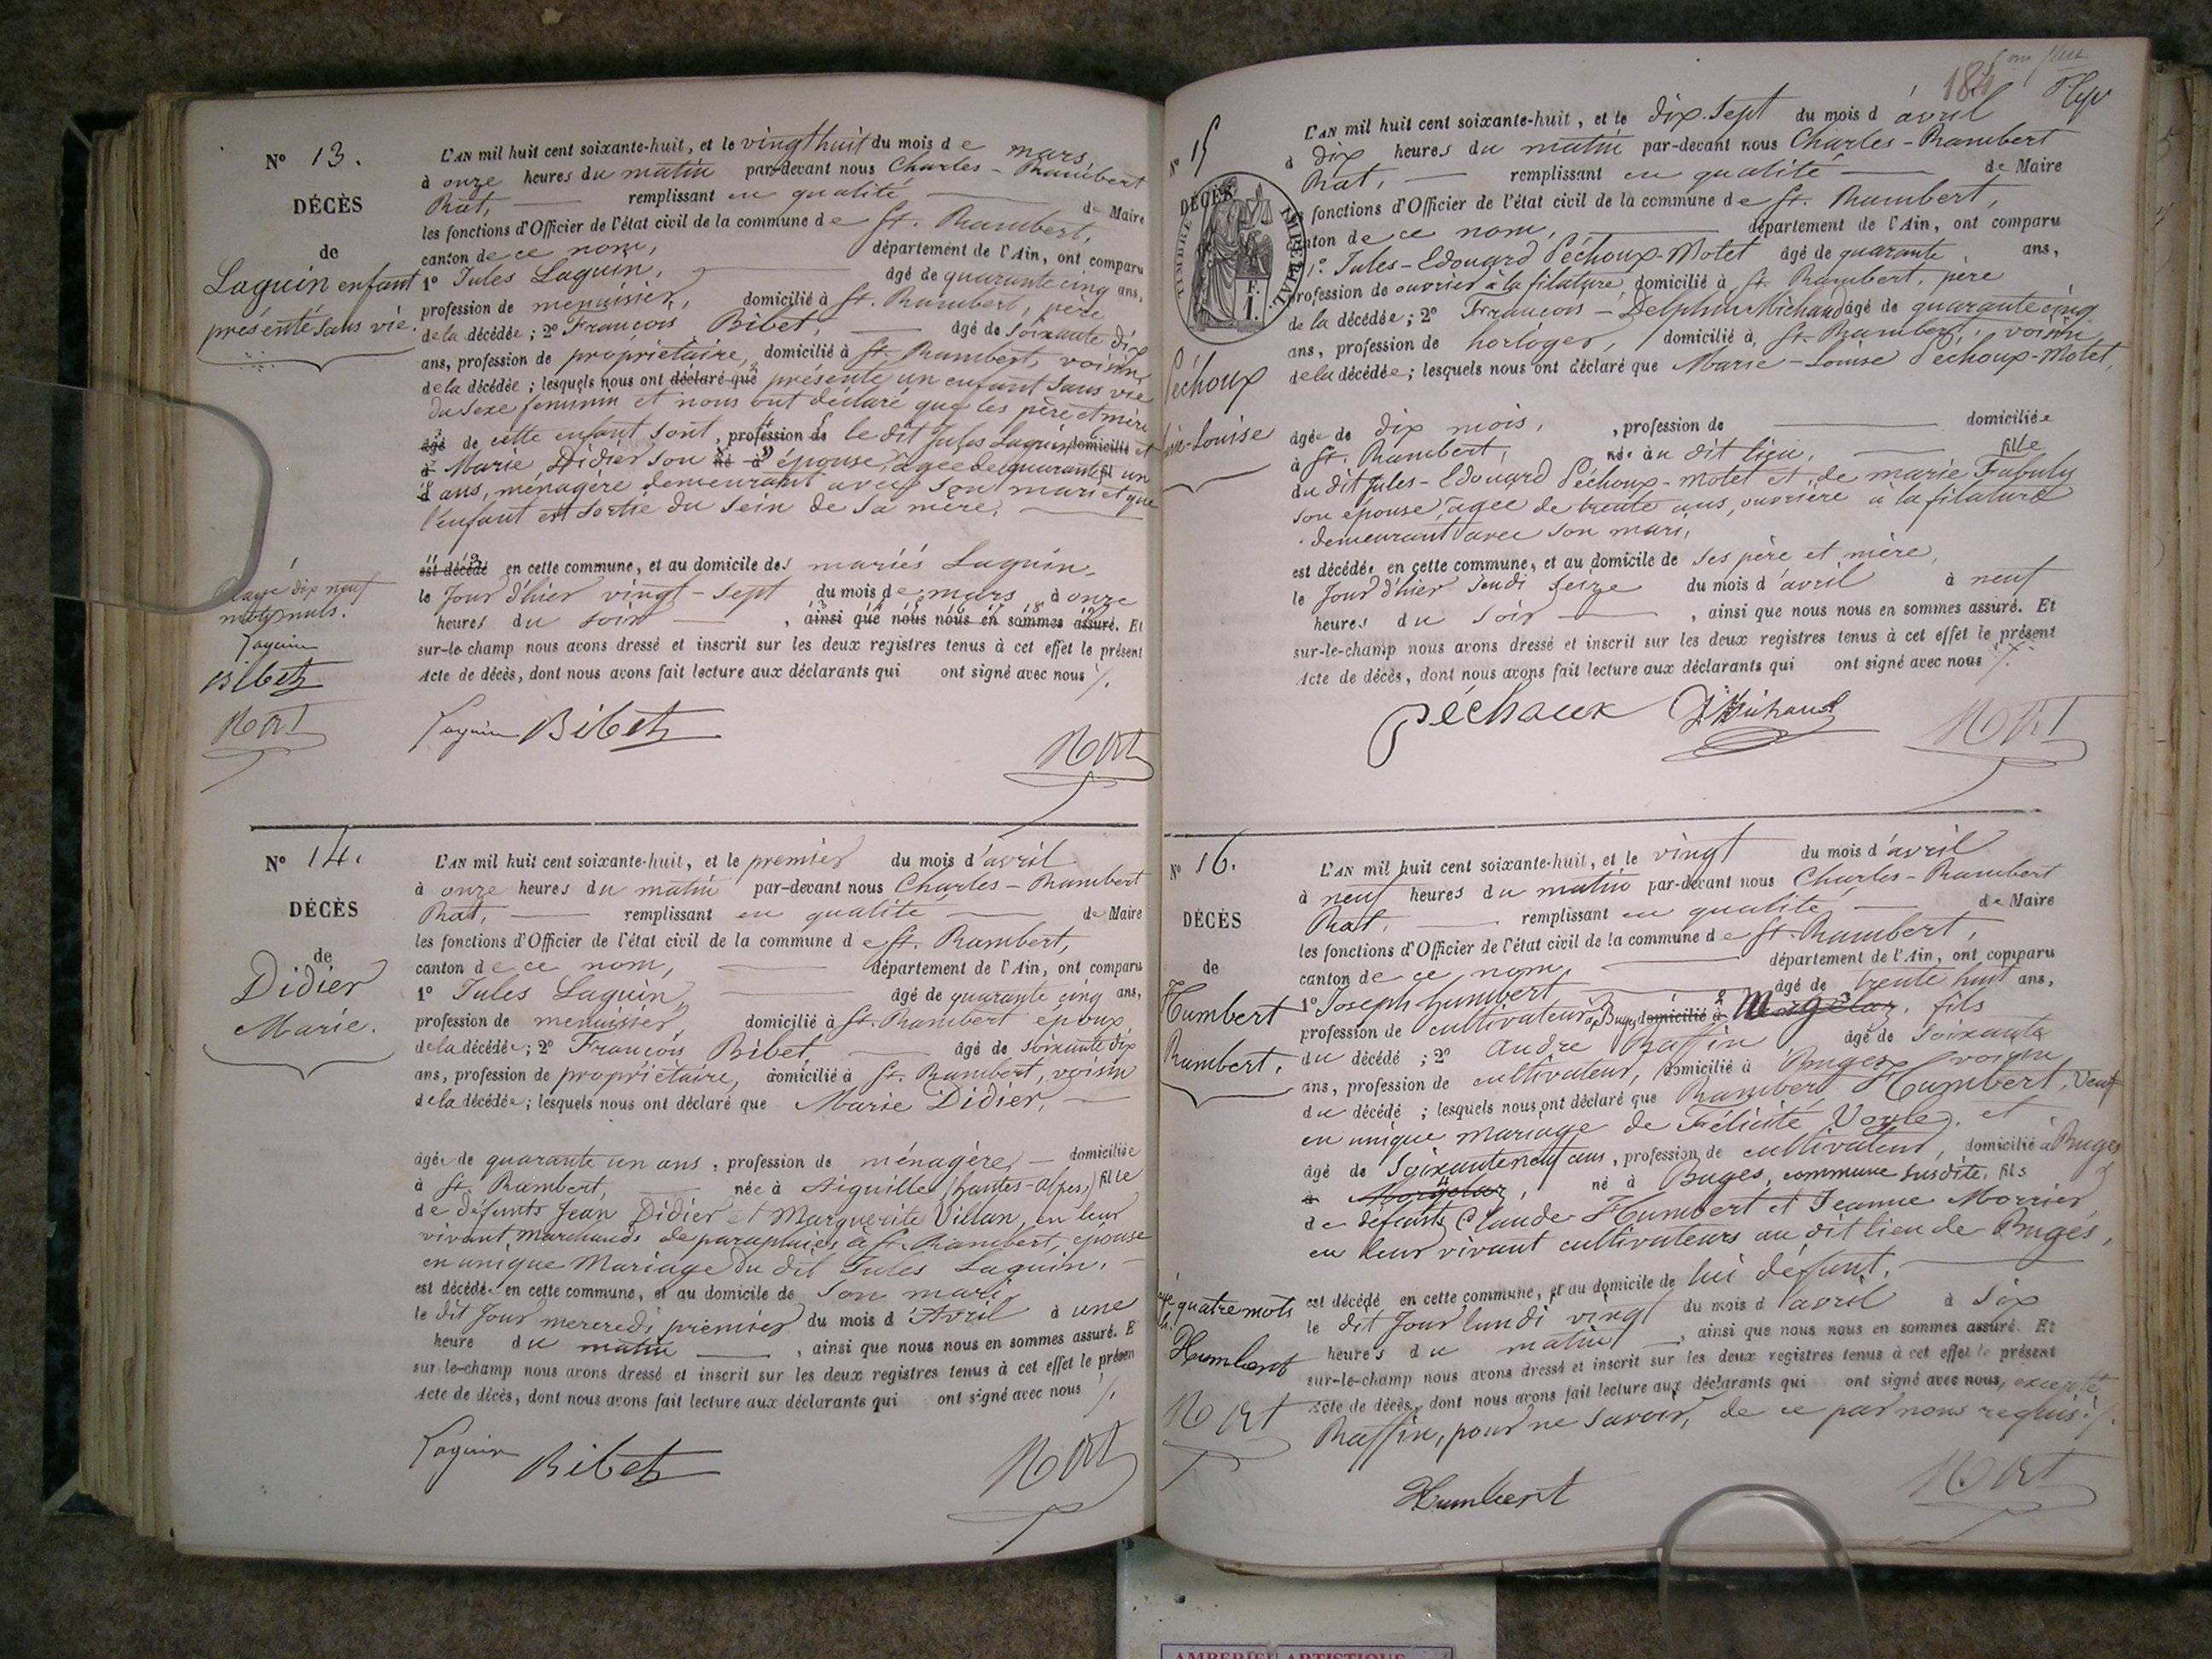 N° 13.
DÉCÈS
de
Laguin enfant
présenté sans vie.
L'AN mil huit cent soixante-huit, et le vingt huit du mois de mars,
à onze heures du matin par-devant nous Charles-Rambert
Rat, remplissant en qualité de Maire
les fonctions d'Officier de l'état civil de la commune de St. Rambert,
canton de ce nom, département de l'Ain, ont comparu
1° Jules Laguin, âgé de quarante cinq ans,
profession de menuisier, domicilié à St. Rambert, père
de la décédée ; 2° François Bibet, âgé de soixante dix
ans, profession de propriétaire, domicilié à St. Rambert, voisin
de la décédée ; lesquels nous ont déclaré que présenté un enfant sans vie
du sexe féminin et nous ont déclaré que les père et mère
âgé de cette enfant sont, profession de le dit Jules Laguin domicilié et
à Marie Didier son né à épouse, agée de quarante un
ans, ménagère demeurant avec son mari et que
l'enfant est sortie du sein de sa mère.
est décédé en cette commune, et au domicile des mariés Laguin,
le jour d'hier vingt-sept du mois de mars à onze
heures du soir, ainsi que nous nous en sommes assuré. Et
sur-le-champ nous avons dressé et inscrit sur les deux registres tenus à cet effet le présent
Acte de décès, dont nous avons fait lecture aux déclarants qui ont signé avec nous ./.
dix neuf
mots nuls.
Laguin
Bibet
Rat
Laguin Bibet
Rat
N° 14.
DÉCÈS
de
Didier
Marie.
L'AN mil huit cent soixante-huit, et le premier du mois d'avril
à onze heures du matin par-devant nous Charles-Rambert
Rat, remplissant en qualité de Maire
les fonctions d'Officier de l'état civil de la commune de St. Rambert,
canton de ce nom, département de l'Ain, ont comparu
1° Jules Laguin, âgé de quarante cinq ans,
profession de menuisier, domicilié à St. Rambert époux
de la décédée ; 2° François Bibet, âgé de soixante dix
ans, profession de propriétaire, domicilié à St. Rambert, voisin
de la décédée ; lesquels nous ont déclaré que Marie Didier,
âgée de quarante un ans, profession de ménagère, domiciliée
à St. Rambert, née à Aiguilles (hautes-alpes,) fille
de défunts Jean Didier et Marguerite Villan, en leur
vivant marchands de parapluies à St. Rambert, épouse
en unique Mariage du dit Jules Laguin.
est décédée en cette commune, et au domicile de son mari,
le dit jour mercredi premier du mois d'Avril à une
heure du matin, ainsi que nous nous en sommes assuré. E
sur-le-champ nous avons dressé et inscrit sur les deux registres tenus à cet effet le présen
Acte de décès, dont nous avons fait lecture aux déclarants qui ont signé avec nous ./.
Laguin Bibet
Rat
184
N° 15
DÉCÈS
TIMBRE IMPERIAL
Péchoux
Louise
L'AN mil huit cent soixante-huit, et le dix-sept du mois d'avril
à dix heures du matin par-devant nous Charles-Rambert
Rat, remplissant en qualité de Maire
fonctions d'Officier de l'état civil de la commune de St. Rambert,
canton de ce nom, département de l'Ain, ont comparu
1°. Jules-Edouard Péchoux-Motet âgé de quarante ans,
profession de ouvrier à la filature, domicilié à St. Rambert, père
de la décédée ; 2° François-Delphin Michaud âgé de quarante cinq
ans, profession de horloger, domicilié à St. Rambert, voisin
de la décédée ; lesquels nous ont déclaré que Marie-Louise Péchoux-Motet,
âgée de dix mois, profession de domiciliée
à St. Rambert, née au dit lieu, fille
du dit Jules-Edouard Péchoux-Motet et de marie Fabuly
son épouse, agée de trente ans, ouvrière à la filature
demeurant avec son mari,
est décédée en cette commune, et au domicile de ses père et mère,
le jour d'hier jeudi seize du mois d'avril à neuf
heures du soir, ainsi que nous nous en sommes assuré. Et
sur-le-champ nous avons dressé et inscrit sur les deux registres tenus à cet effet le présent
Acte de décès, dont nous avons fait lecture aux déclarants qui ont signé avec nous ./.
Péchoux Michaud
Rat
N° 16.
DÉCÈS
de
Humbert
Rambert.
L'AN mil huit cent soixante-huit, et le vingt du mois d'avril
à neuf heures du matin par-devant nous Charles-Rambert
Rat, remplissant en qualité de Maire
les fonctions d'Officier de l'état civil de la commune de St. Rambert,
canton de ce nom, département de l'Ain, ont comparu
1° Joseph humbert âgé de trente huit ans,
profession de cultivateur, à Buges domicilié à Morgelaz, fils
du décédé ; 2° André Raffin âgé de soixante
ans, profession de cultivateur, domicilié à Buges voisin
du décédé ; lesquels nous ont déclaré que Rambert Humbert, veuf
en unique mariage de Félicité Voyle, et
âgé de soixante neuf ans, profession de cultivateur, domicilié à Buges
à Morgelaz, né à Buges, commune susdite, fils
de défunts Claude Humbert et Jeanne Morrier
en leur vivant cultivateurs au dit lieu de Buges,
est décédé en cette commune, et au domicile de lui défunt.
le dit jour lundi vingt du mois d'avril à six
heures du matin, ainsi que nous nous en sommes assuré. Et
sur-le-champ nous avons dressé et inscrit sur les deux registres tenus à cet effet le présent
Acte de décès, dont nous avons fait lecture aux déclarants qui ont signé avec nous, excepté
Raffin, pour ne savoir, de ce par nous requis ./.
quatre mots
Humbert
Rat
Humbert
Rat
AMBERIEU ARTISTIQUE